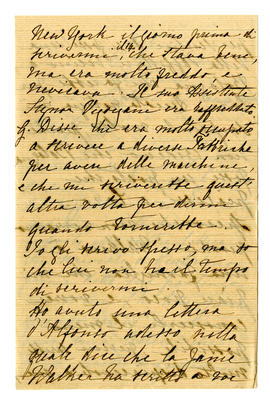 New York il giorno prima di
scrivermi, il 14, che stava bene,
ma era molto freddo, e
nevicava. Il suo assistente
Signor Viegani era raffreddato
G. Disse che era molto occupato
a scrivere a diverse Fabbriche
per avere delle macchine,
e che mi scriverebbe quest'
altra volta per dirmi
quando tornerebbe.
Io gli scrivo spesso, ma so
che lui non ha il tempo
di scrivermi
Ho avuto una lettera
d'Alfonso adesso nella
quale dice che la Janie
Walker ha scritto a voi